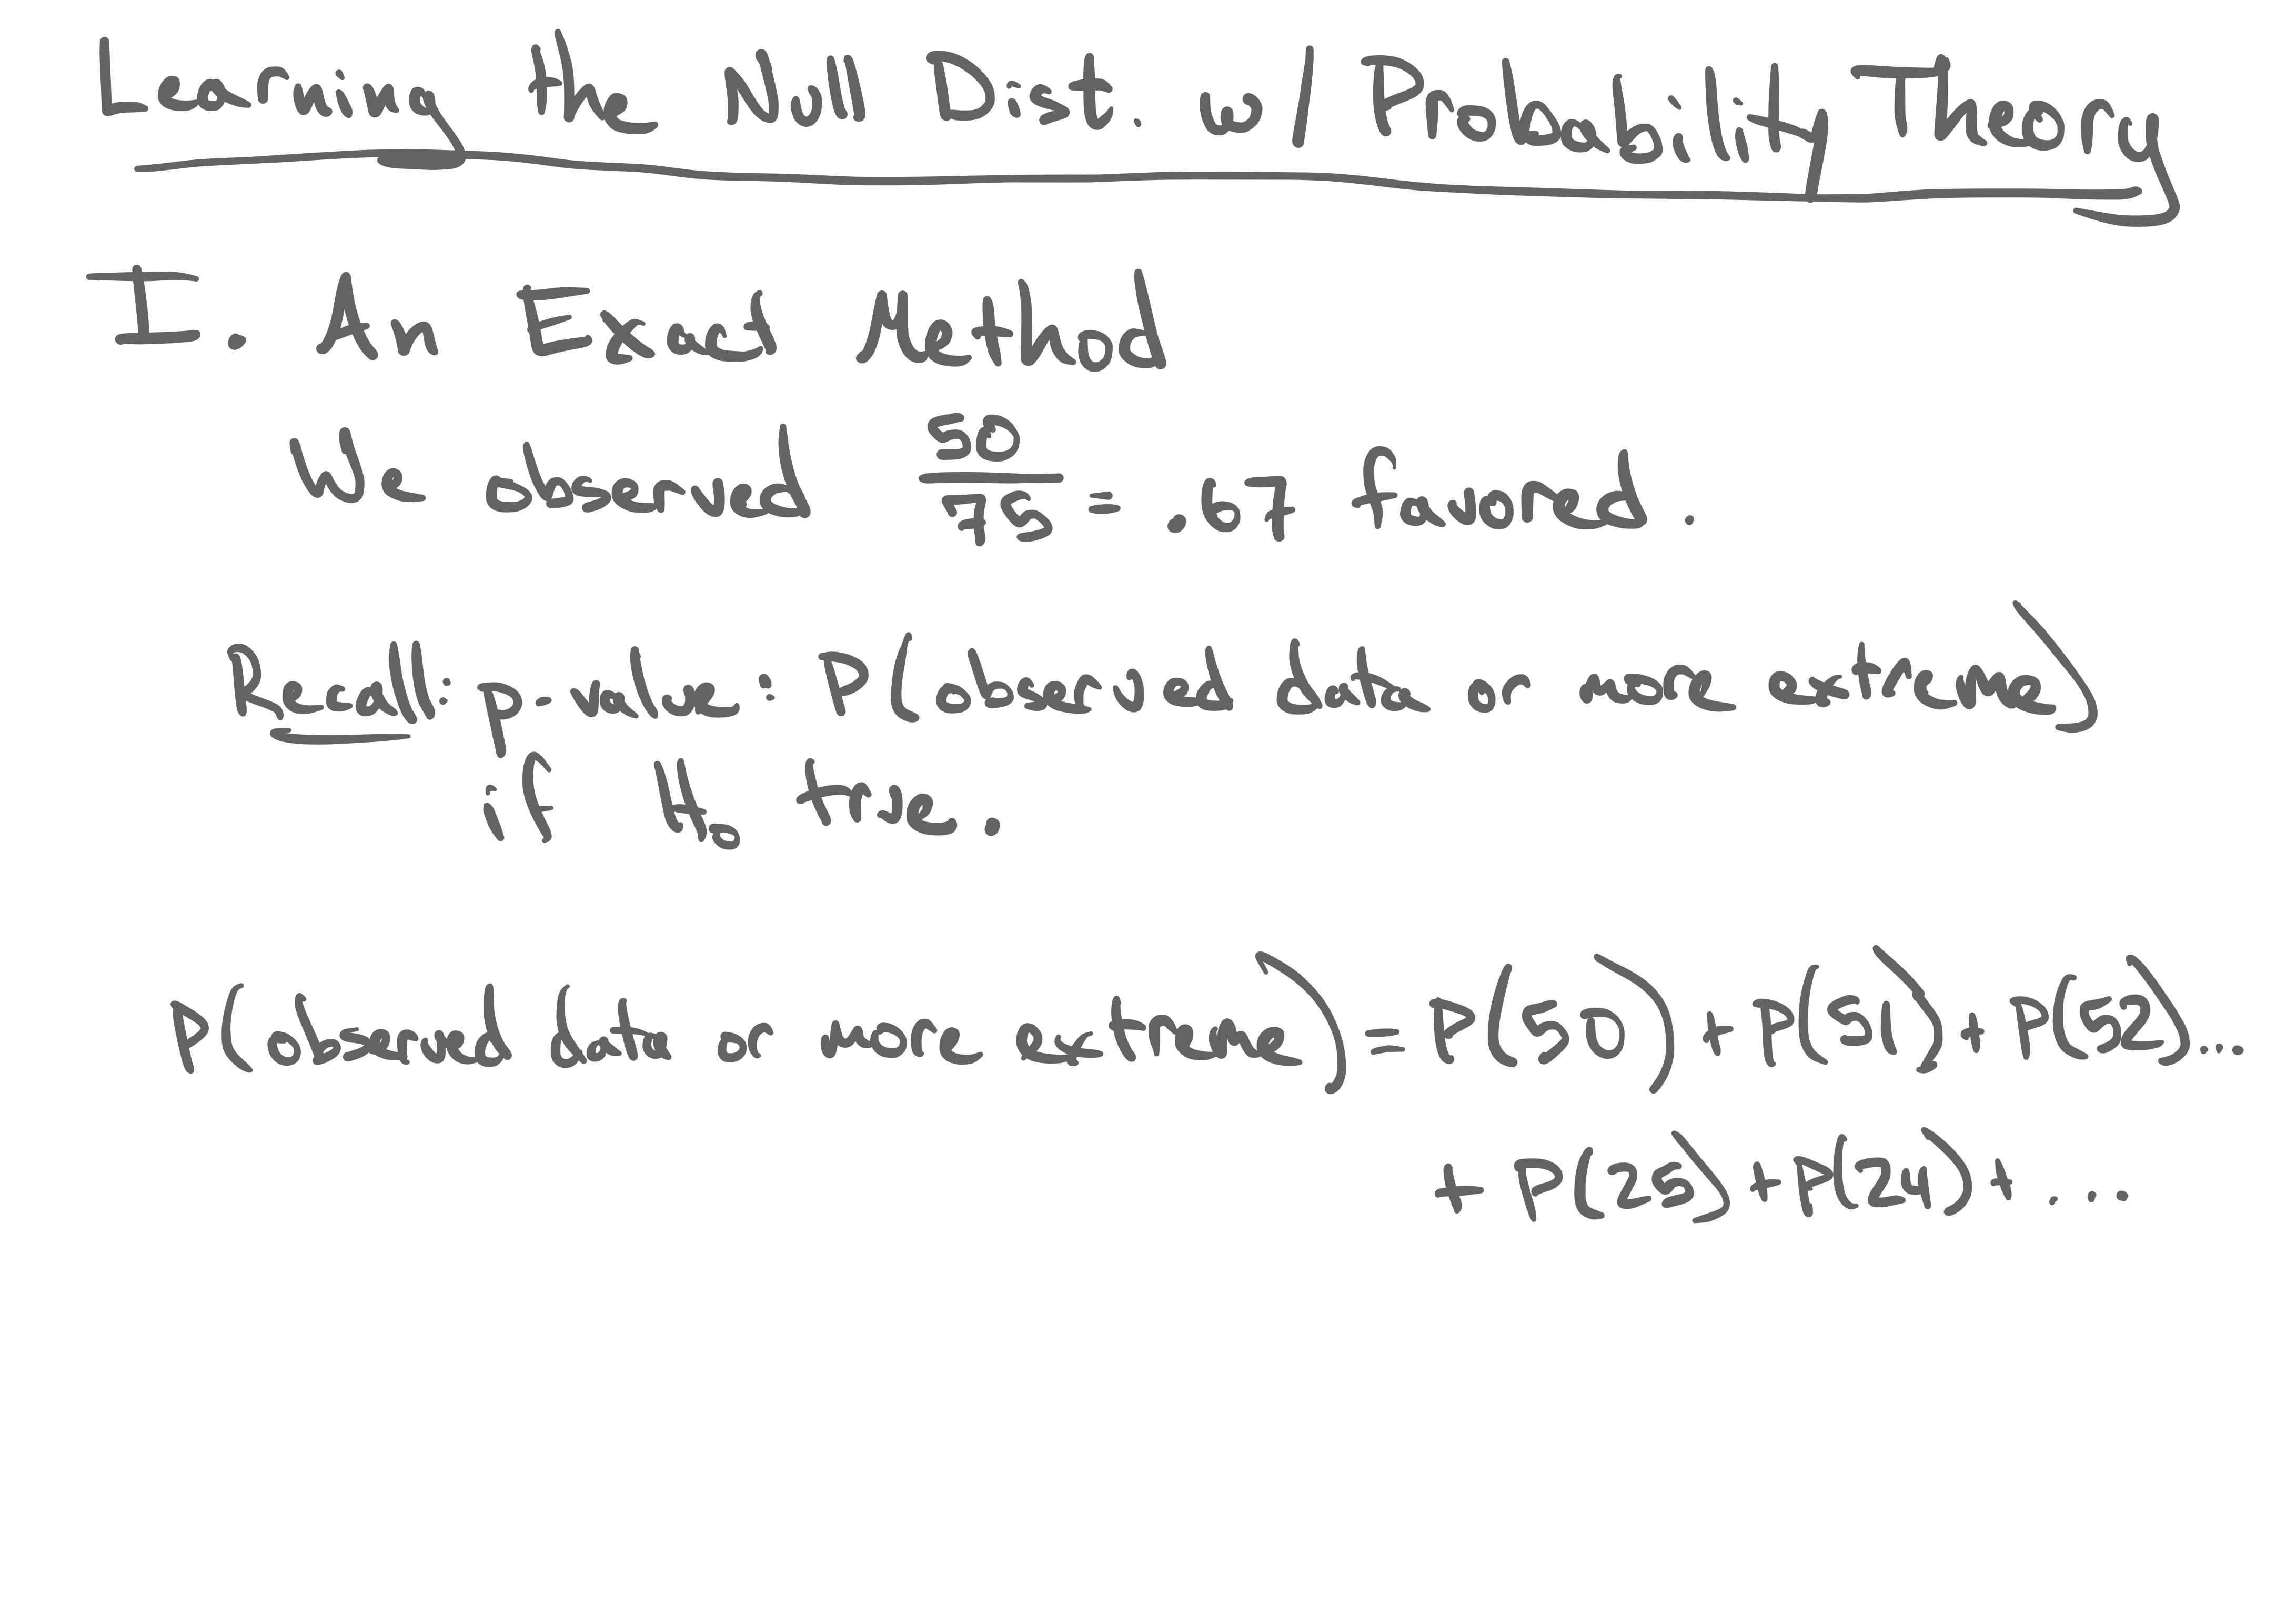 Learning the Null Dist. w/ Probability Theory
I. An Exact Method
We observed 50/75 = .67 favored.
Recall: p-value: P(observed data or more extreme)
if H₀ true.
P(observed data or more extreme) = P(50) + P(51) + P(52)...
+ P(25) + P(24) + ...